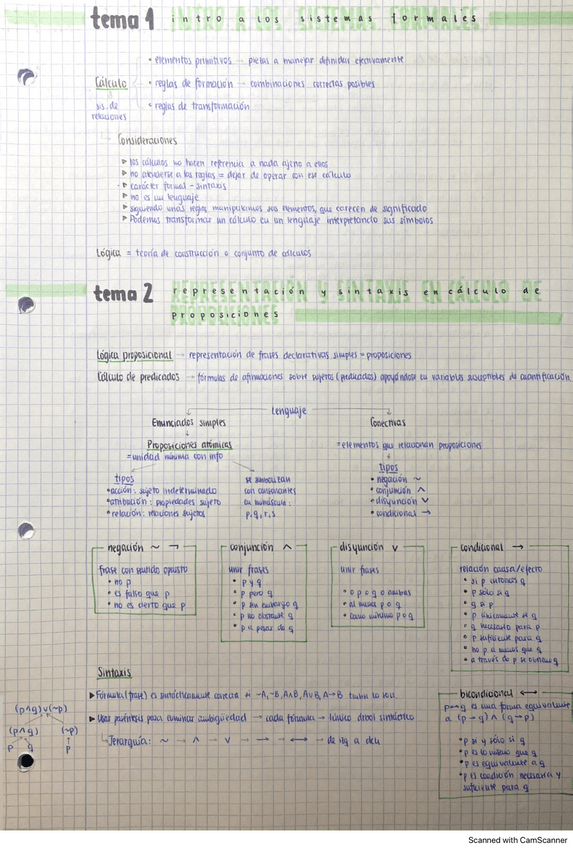 tema 1 intro a los sistemas formales
• elementos primitivos → piezas a manejar definidas efectivamente
Cálculo • reglas de formación → combinaciones correctas posibles
sis. de • reglas de transformación
relaciones
Consideraciones
▸ los cálculos no hacen referencia a nada ajeno a ellos
▸ no atenerse a las reglas = dejar de operar con ese cálculo
▸ carácter formal - sintaxis
▸ no es un lenguaje
▸ siguiendo unas reglas manipulamos sus elementos, que carecen de significado
▸ Podemos transformar un cálculo en un lenguaje interpretando sus símbolos
Lógica = teoría de construcción o conjunto de cálculos
tema 2 representación y sintaxis en cálculo de
proposiciones
Lógica proposicional → representación de frases declarativas simples = proposiciones
Cálculo de predicados → fórmulas de afirmaciones sobre sujetos (predicados) apoyándose en variables susceptibles de cuantificación
lenguaje
Enunciados simples Conectivas
Proposiciones atómicas = elementos que relacionan proposiciones
= unidad mínima con info
tipos
• acción: sujeto indeterminado
• atribución: propiedades sujeto
• relación: relaciones sujetos
se simbolizan
con consonantes
en minúscula:
p, q, r, s
tipos
• negación ~
• conjunción ∧
• disyunción ∨
• condicional →
negación ~ ¬
frase con sentido opuesto
• no p
• es falso que p
• no es cierto que p
conjunción ∧
unir frases
• p y q
• p pero q
• p sin embargo q
• p no obstante q
• p a pesar de q
disyunción ∨
unir frases
• o p o q o ambas
• al menos p o q
• como mínimo p o q
condicional →
relación causa/efecto
• si p entonces q
• p sólo si q
• q si p
• p únicamente si q
• q necesario para p
• p suficiente para q
• no p a menos que q
• a través de p se q
Sintaxis
▸ Fórmula (frase) es sintácticamente correcta si ¬A, ¬B, A∧B, A∨B, A→B también lo son.
▸ Usar paréntesis para eliminar ambigüedad → cada fórmula → único árbol sintáctico
Jerarquía: ~ → ∧ → ∨ → → → ↔ → de izq a dcha
(p∧q)∨(¬p)
(p∧q) (¬p)
p q p
bicondicional ↔
p↔q es una forma equivalente
a (p→q) ∧ (q→p)
• p si y sólo si q
• p es lo mismo que q
• p es equivalente a q
• p es condición necesaria y
suficiente para q
Scanned with CamScanner